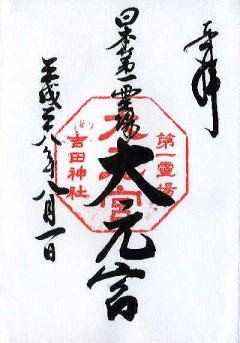 奉拝
日本第一霊場
大元宮
平成二十八年八月一日
第一霊場
大元宮
吉田神社